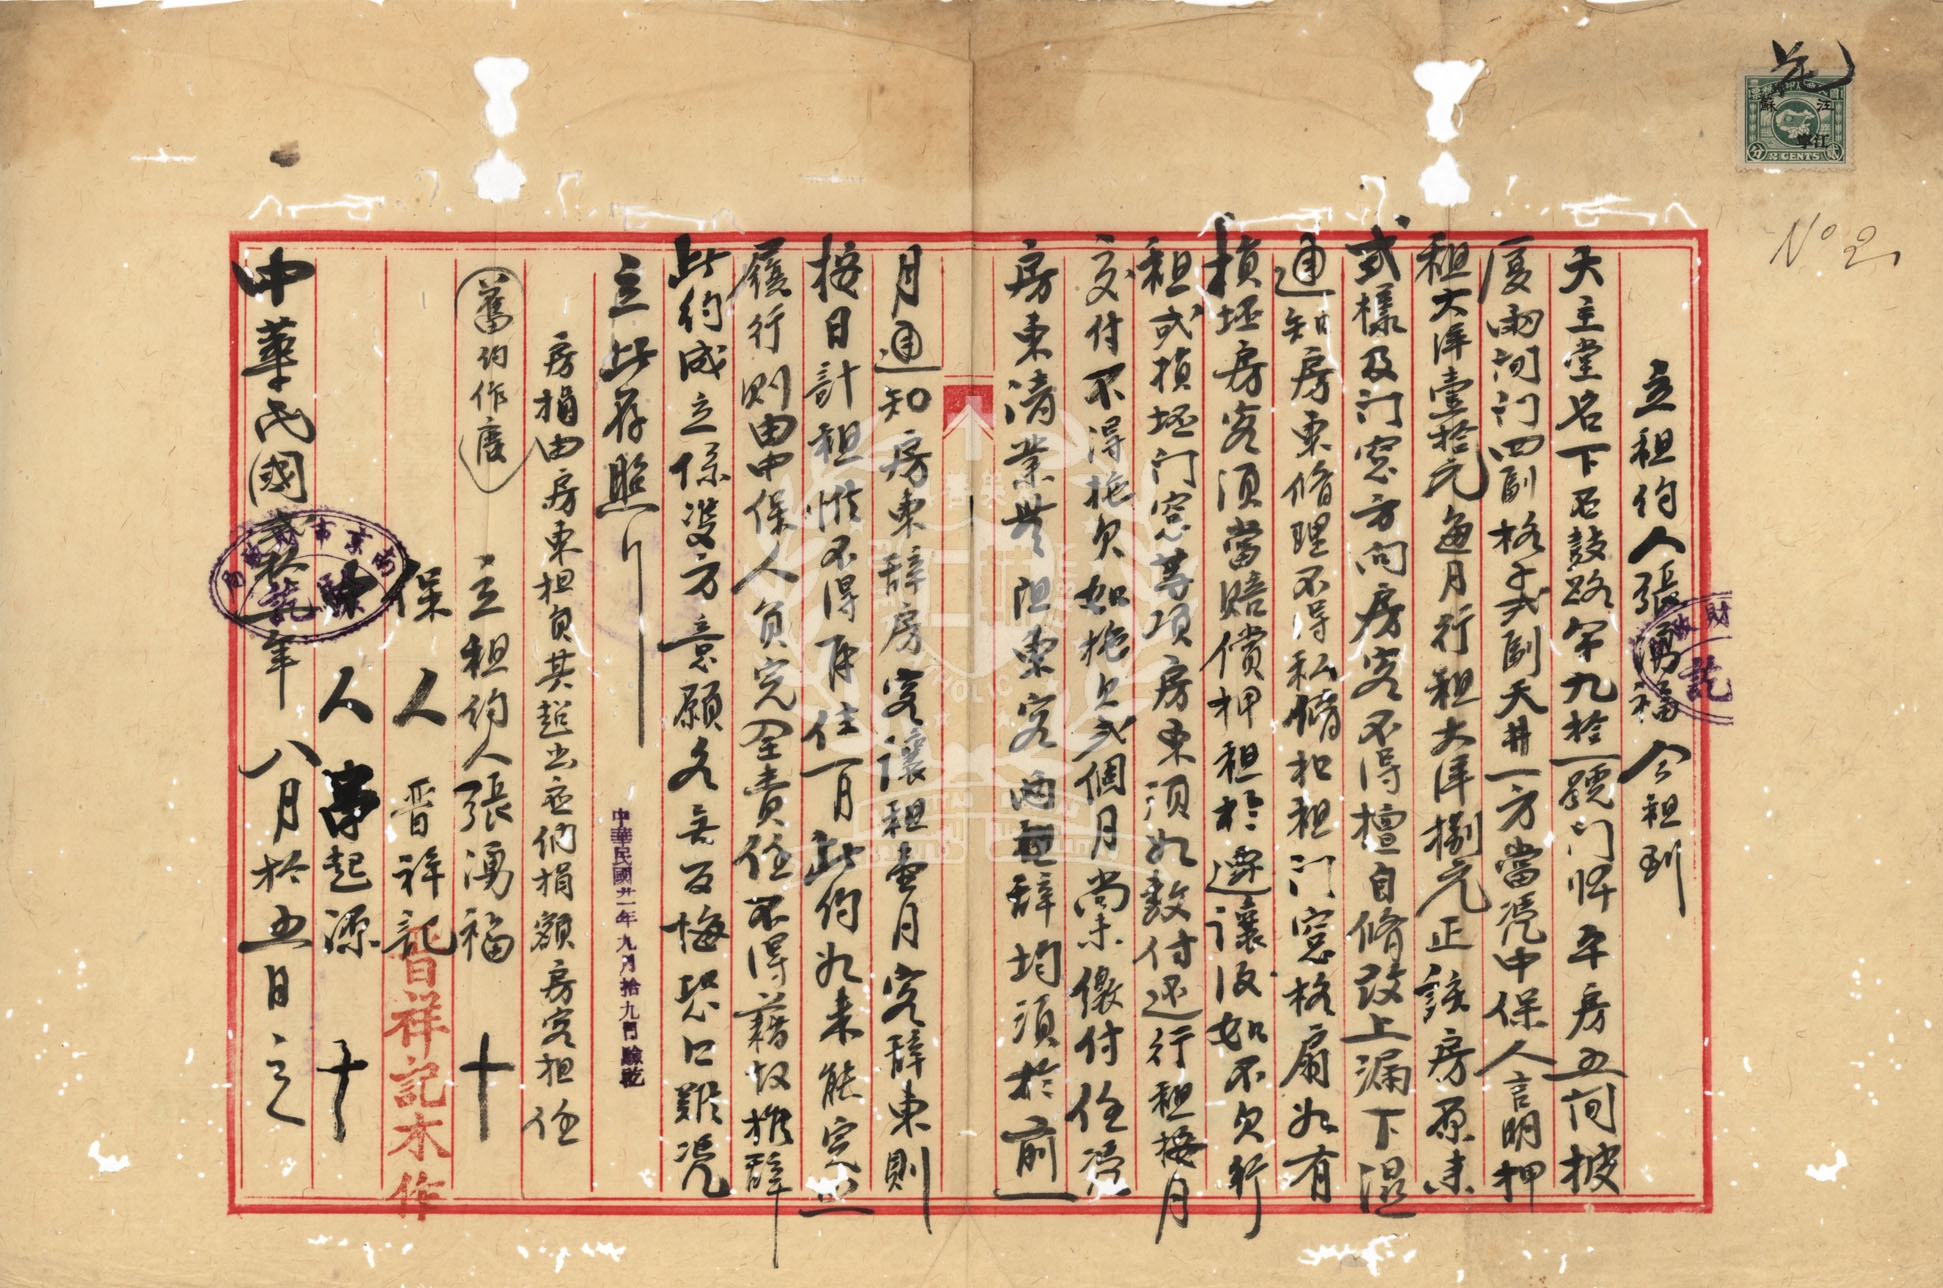 立租約人張湧福今租到
天主堂名下石鼓路第九拾一號門牌平房五间披
厦兩间门四副格子弍副天井一方當凴中保人言明押
租大洋壹拾元每月行租大洋捌元正該房原来
式樣及门窓方向房客不得擅自修改上漏下湿
通知房東修理不得私修扣租门窓格扇如有
損坯房客須當賠償押租於遷讓後如不欠行
租或損坯门窓等項房東須如数付还行租按月
交付不得拖欠如拖欠弍個月尚未繳付任凴
房東清業無阻東客兩辞均須於前一
月通知房東辞房客讓租壹月客辞東則
按日計租惟不得再住一月此約如未能完全
履行則由中保人負完全責任不得藉故推辞
此約成立係双方意願各無反悔恐口難凴
立此存照
房捐由房東担負其超出應納捐額房客担任
舊約作廢
立租約人張湧福 十
保人 晋祥記
晋祥記木作
人 起源 十
中華民國弍拾一年八月拾五日立
中華民國廿一年九月拾九日驗訖
南京市財政局
驗訖
財
訖
江蘇
江寧
2 CENTS
No 2